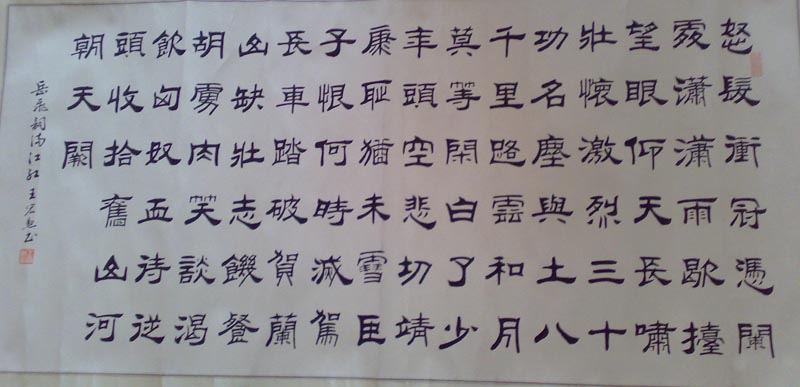 怒髮衝冠憑闌
處瀟瀟雨歇擡
望眼仰天長嘯
壯懷激烈三十
功名塵與土八
千里路雲和月
莫等閑白了少
年頭空悲切靖
康恥猶未雪臣
子恨何時滅駕
長車踏破賀蘭
山缺壯志饑餐
胡虜肉笑談渴
飲匈奴血待從
頭收拾舊山河
朝天闕
岳飛詞滿江紅 王書